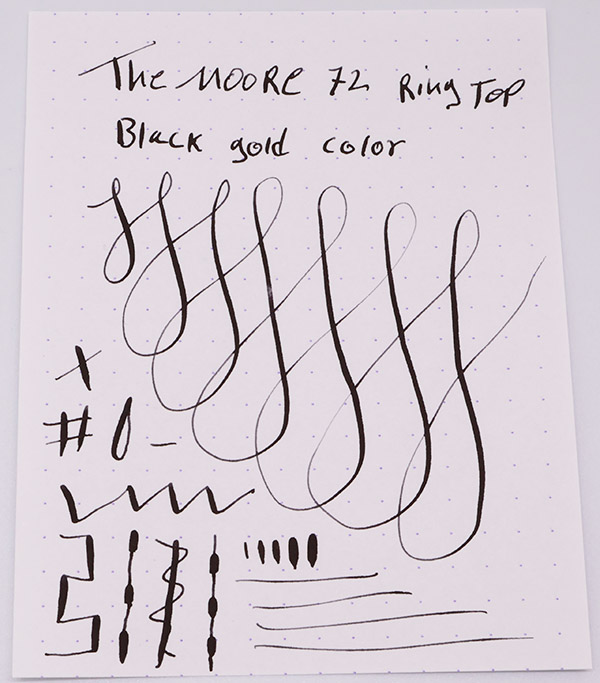 The MOORE 72 Ring Top
Black gold color